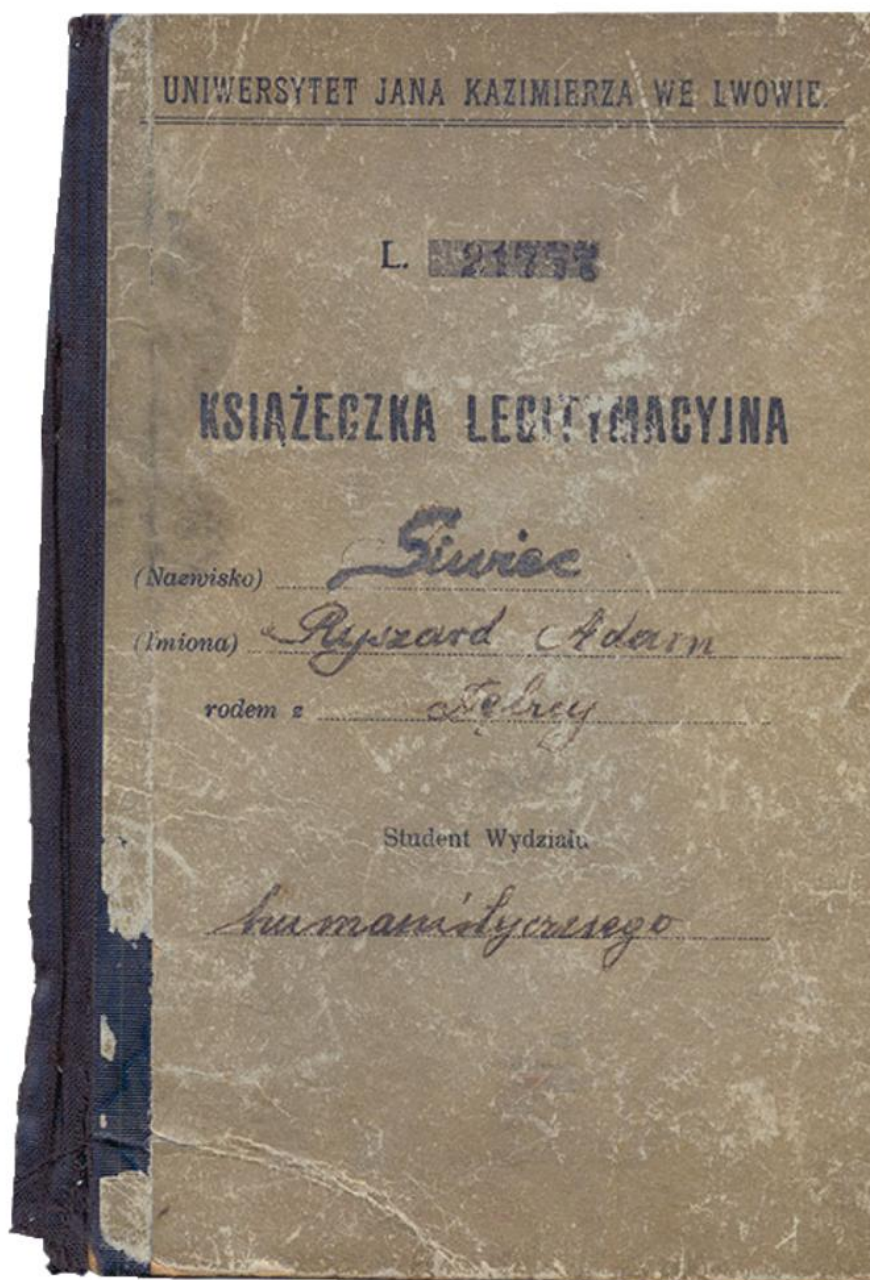 UNIWERSYTET JANA KAZIMIERZA WE LWOWIE.
L.
KSIĄŻECZKA LEGITYMACYJNA
(Nazwisko) Siwiec
(Imiona) Ryszard Adam
rodem z Dębicy
Student Wydziału
humanistycznego